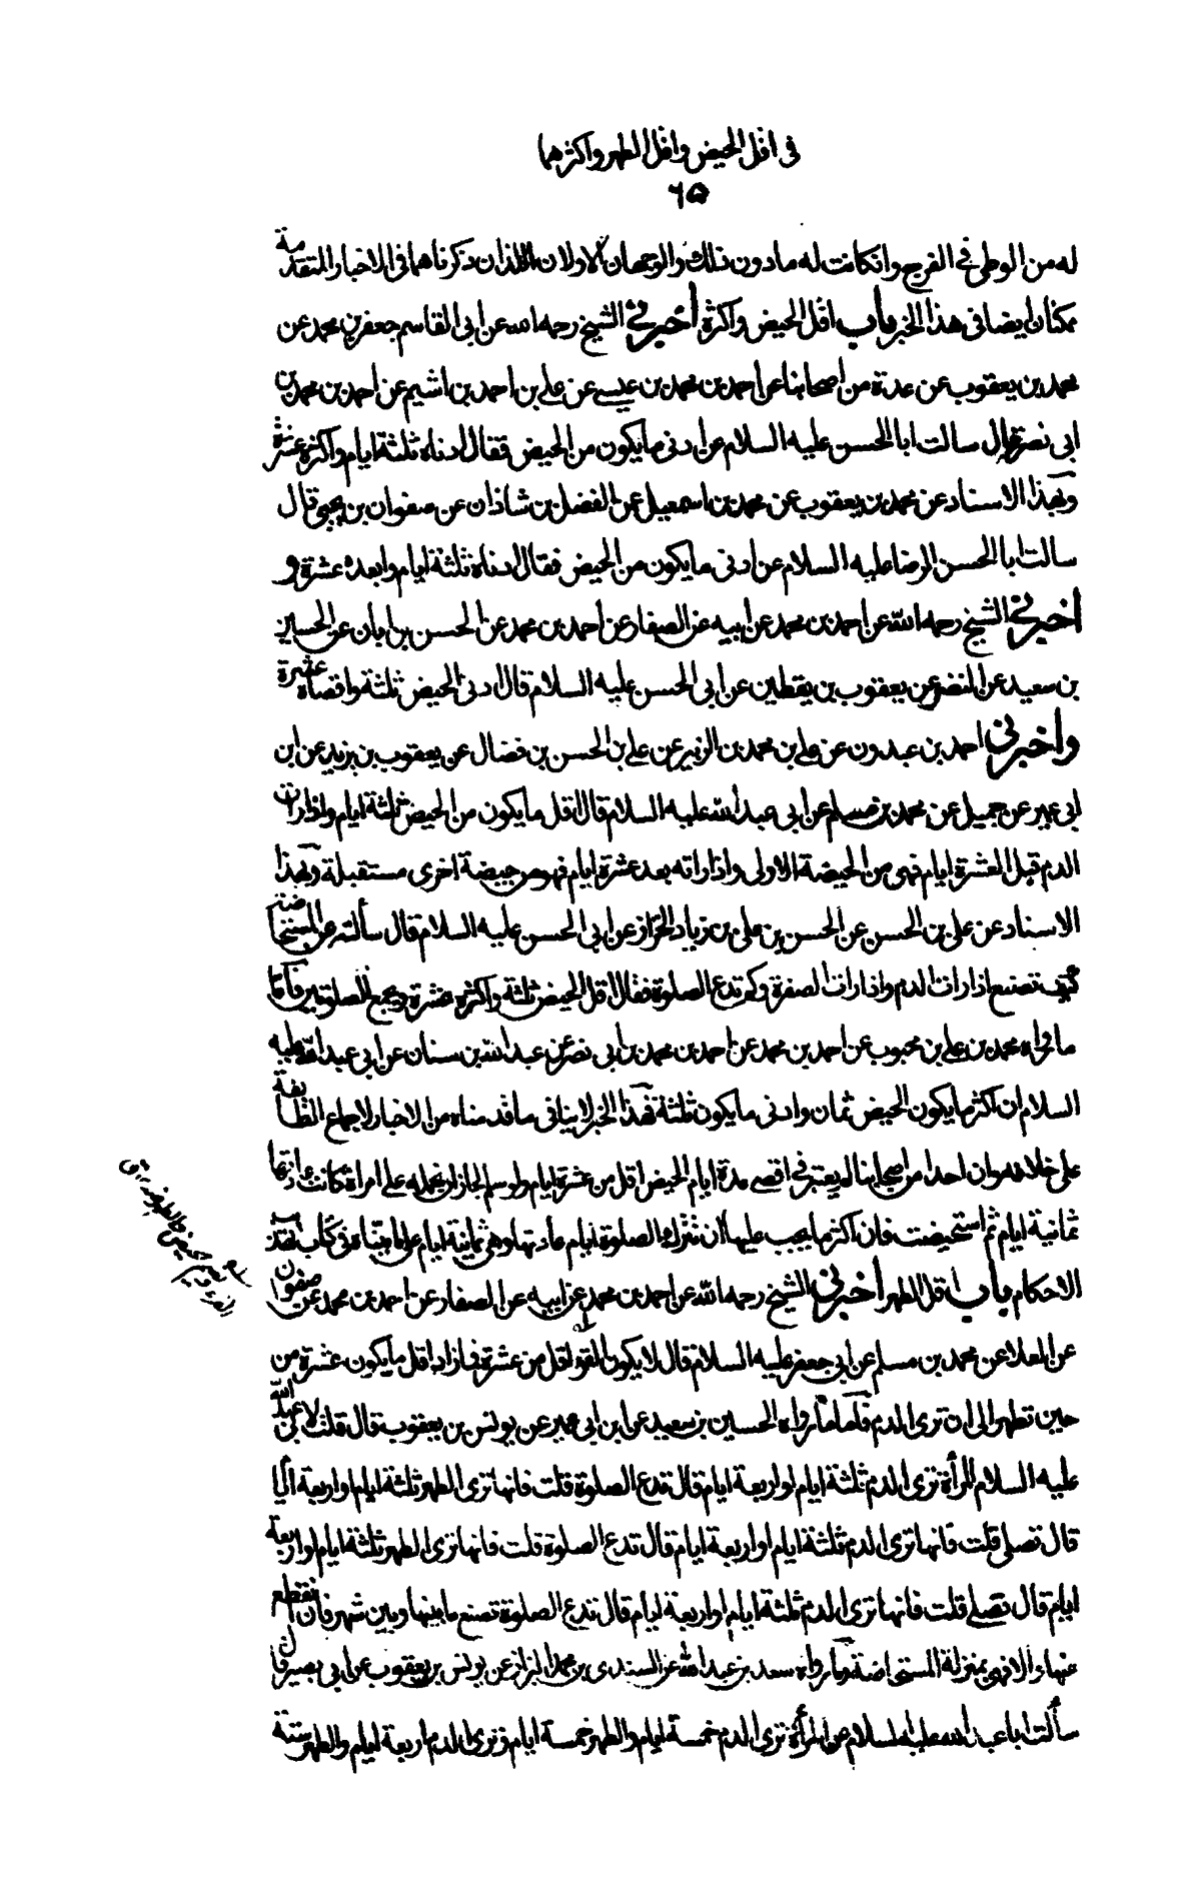 فى اقل الحيض واقل الطهر واكثرهما
٦٥
له من الوطى فى الفرج وانكانت له مادون ذلك والوجهان الاولان اللذان ذكرناهما فى الاخبار المتقدمة
ممكنان ايضا فى هذا الخبر باب اقل الحيض واكثره أخبرني الشيخ رحمه الله عن ابى القاسم جعفر بن محمد عن
محمد بن يعقوب عن عدة من اصحابنا عن احمد بن محمد بن عيسى عن على بن احمد بن اشيم عن احمد بن محمد بن
ابى نصر قال سالت ابا الحسن عليه السلام عن ادنى مايكون من الحيض فقال ادناه ثلثة ايام واكثره عشرة
وبهذا الاسناد عن محمد بن يعقوب عن محمد بن اسمعيل عن الفضل بن شاذان عن صفوان بن يحيى قال
سالت ابا الحسن الرضا عليه السلام عن ادنى مايكون من الحيض فقال ادناه ثلثة ايام وابعده عشرة و
أخبرني الشيخ رحمه الله عن احمد بن محمد عن ابيه عن الصفار عن احمد بن محمد عن الحسن بن ابان عن الحسين
بن سعيد عن النضر عن يعقوب بن يقطين عن ابى الحسن عليه السلام قال ادنى الحيض ثلثة واقصاه عشرة
واخبرني احمد بن عبدون عن على بن محمد بن الزبير عن على بن الحسن بن فضال عن يعقوب بن يزيد عن ابن
ابى عمير عن جميل عن محمد بن مسلم عن ابى عبد الله عليه السلام قال اقل مايكون من الحيض ثلثة ايام واذا رات
الدم قبل العشرة ايام فهى من الحيضة الاولى واذا راته بعد عشرة ايام فهو من حيضة اخرى مستقبلة وبهذا
الاسناد عن على بن الحسن عن الحسن بن على بن زياد الخزاز عن ابى الحسن عليه السلام قال سألته عن المستحاضة
كيف تصنع اذا رات الدم واذا رات الصفرة وكم تدع الصلوة فقال اقل الحيض ثلثة واكثره عشرة وتجمع الصلوتين فأما
ما رواه محمد بن على بن محبوب عن احمد بن محمد عن احمد بن محمد بن ابى نصر عن عبد الله بن سنان عن ابى عبد الله عليه
السلام ان اكثر مايكون الحيض ثمان وادنى مايكون ثلثة فهذا الخبر لاينافى ماقدمناه من الاخبار لاجماع الطايفة
على خلافه وان احدا من اصحابنا لم يعتبر فى اقصى مدة ايام الحيض اقل من عشرة ايام ولوسلم لجاز ان نحمله على امراة كانت عادتها
ثمانية ايام ثم استحيضت فان اكثر مايجب عليها ان تترك الصلوة ايام عادتها وهى ثمانية ايام على مابيناه فى كتاب تهذيب
الاحكام باب اقل الطهر أخبرني الشيخ رحمه الله عن احمد بن محمد عن ابيه عن الصفار عن احمد بن محمد عن صفوان
عن العلا عن محمد بن مسلم عن ابى جعفر عليه السلام قال لايكون القرء اقل من عشرة فما زاد اقل مايكون عشرة من
حين تطهر الى ان ترى الدم فاما ما رواه الحسين بن سعيد عن ابن ابى عمير عن يونس بن يعقوب قال قلت لابى عبد الله
عليه السلام المرأة ترى الدم ثلثة ايام او اربعة ايام قال تدع الصلوة قلت فانها ترى الطهر ثلثة ايام او اربعة ايام
قال تصلى قلت فانها ترى الدم ثلثة ايام او اربعة ايام قال تدع الصلوة قلت فانها ترى الطهر ثلثة ايام او اربعة
ايام قال تصلى قلت فانها ترى الدم ثلثة ايام او اربعة ايام قال تدع الصلوة تصنع مابينها وبين شهر فان انقطع
عنها والا فهى بمنزلة المستحاضة وما رواه سعد بن عبد الله عن السندى بن محمد البزاز عن يونس بن يعقوب عن ابى بصير قال
سألت ابا عبد الله عليه السلام عن المرأة ترى الدم خمسة ايام والطهر خمسة ايام وترى الدم اربعة ايام والطهر ستة